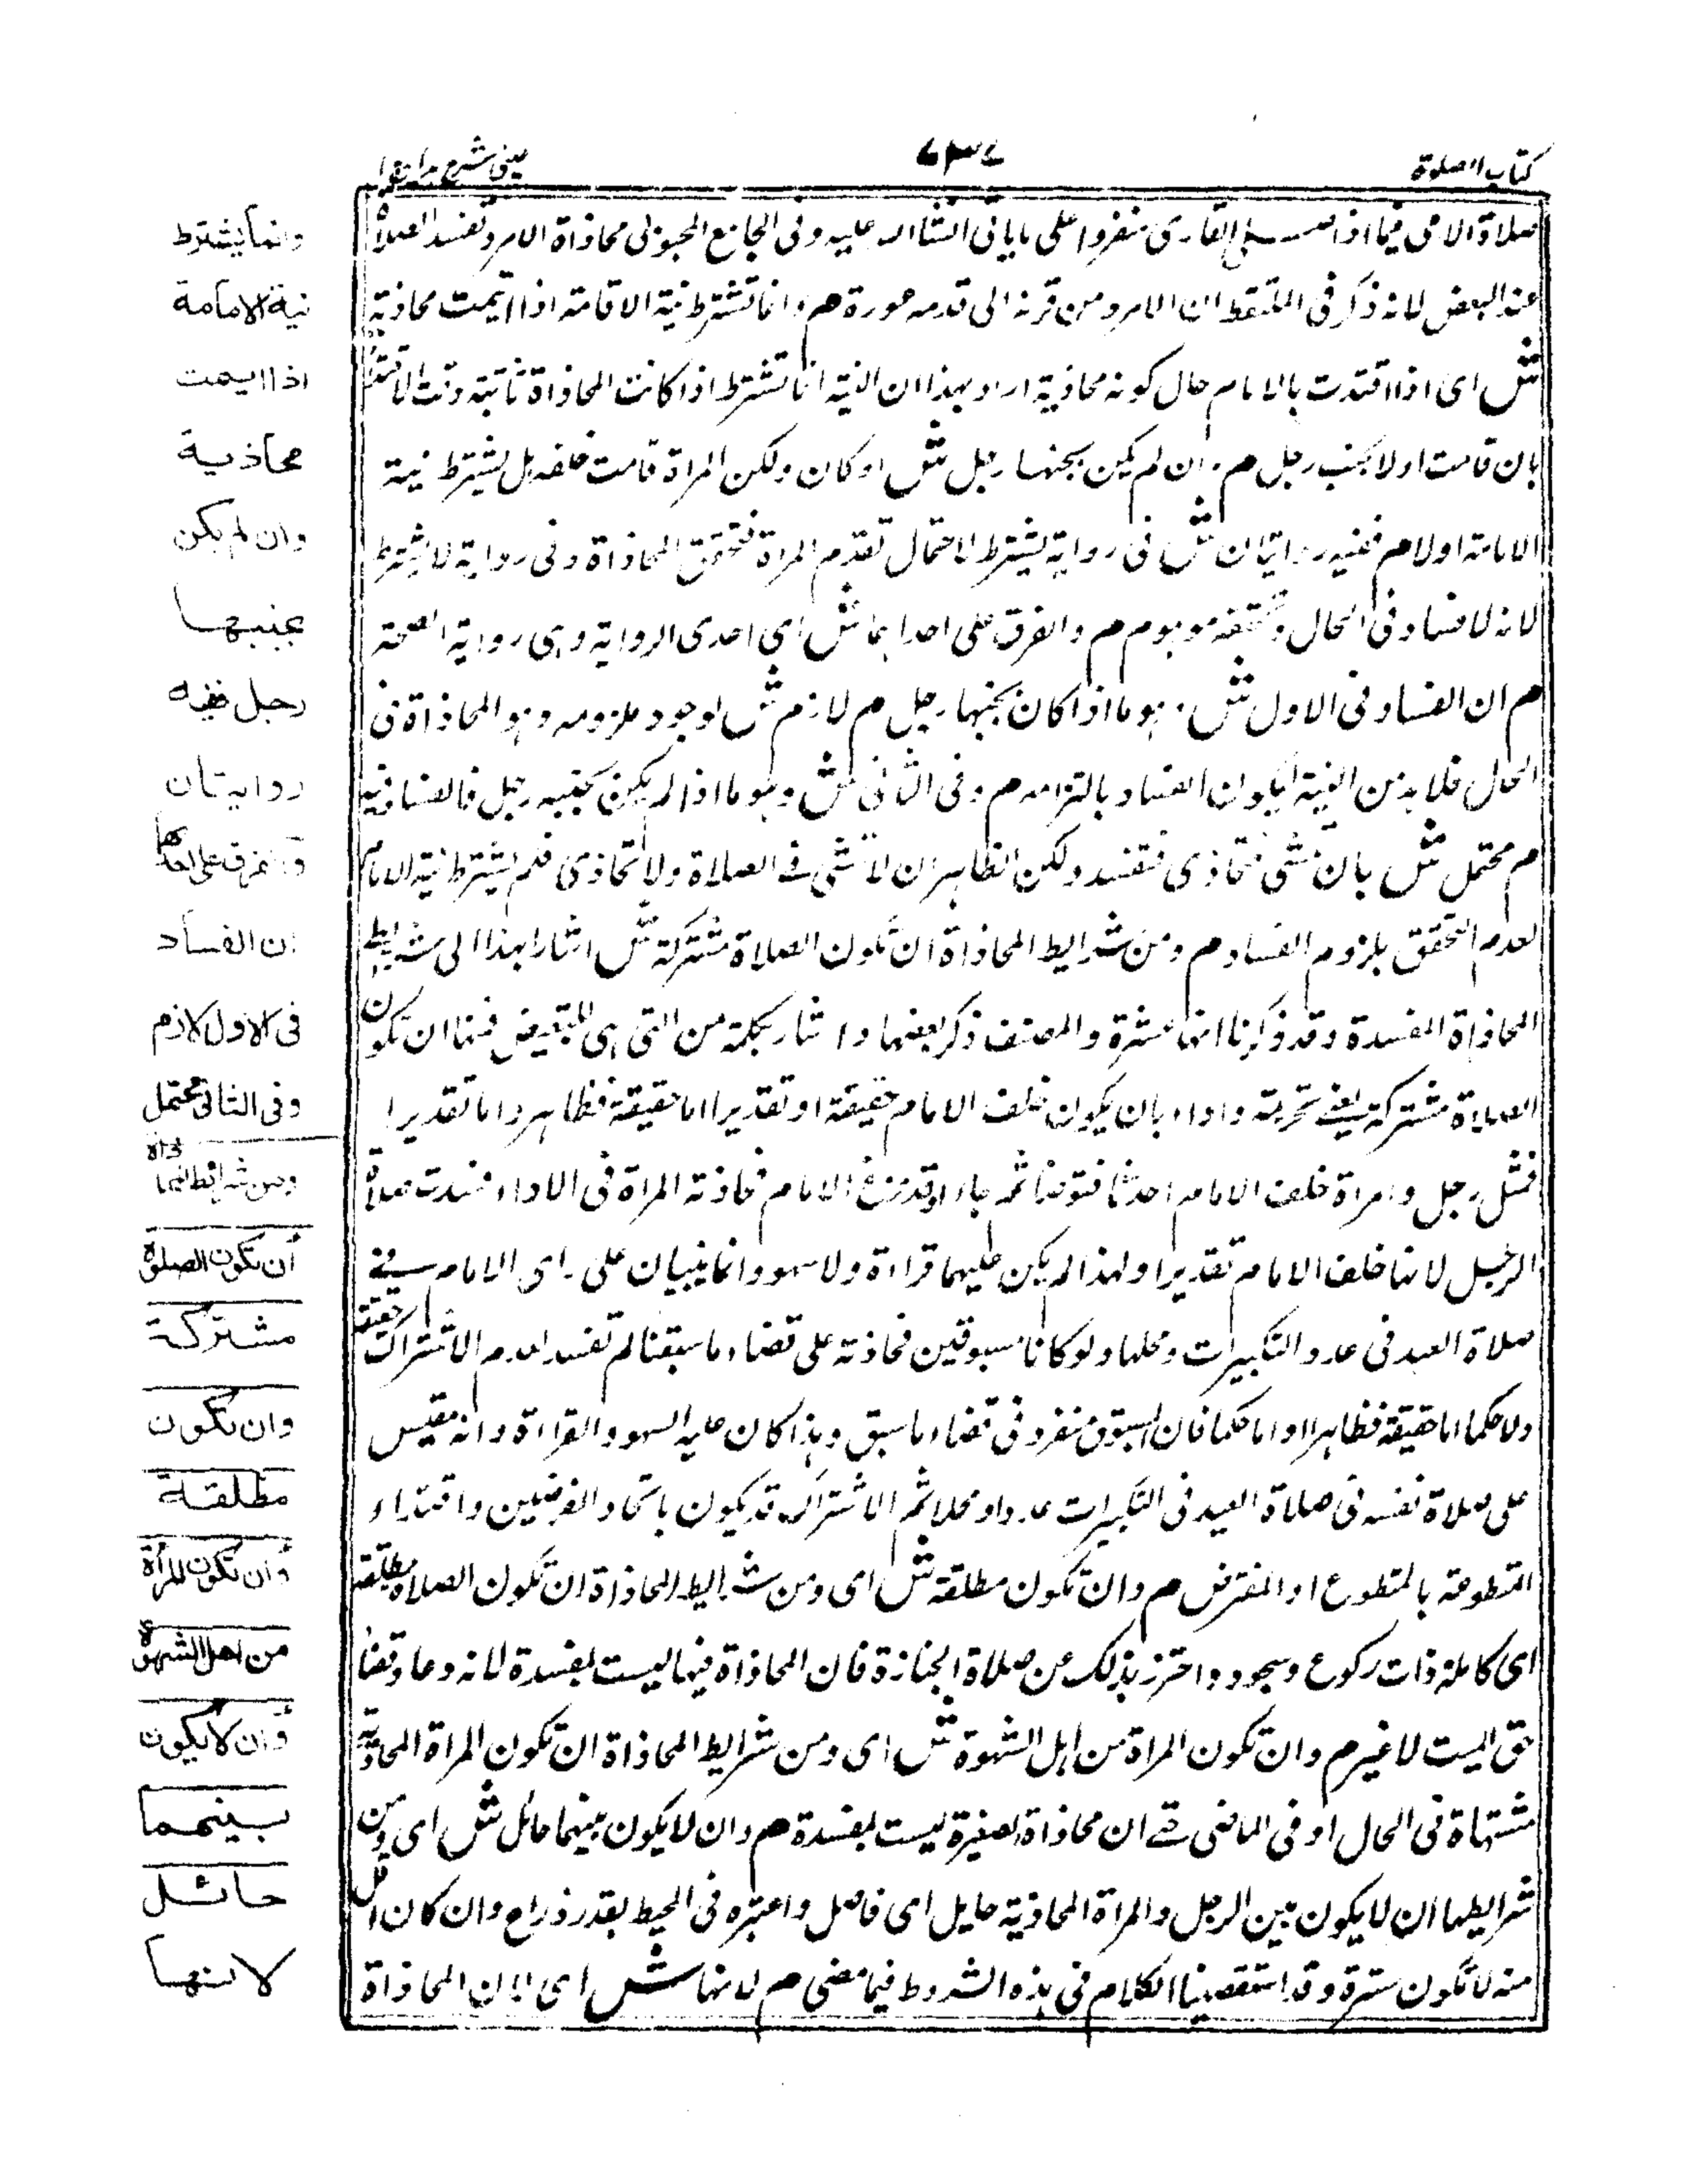 كتاب الصلاة
٧٣٧
عينى شرح هدايه جلد ا
صلاة الامى فيما اذا صلى القارى منفردا على ما ياتى انشاالله عليه وفى الجامع المحبوبى محاذاة الامرد تفسد الصلاة
عند البعض لانه ذكر فى الملتقط ان الامرد من قرنه الى قدمه عورة م وانما تشترط نية الاقامته اذا ايتمت محاذية
ش اى اذا اقتدت بالامام حال كونه محاذية اراد بهذا ان النية انما تشترط اذا كانت المحاذاة ثابتة وقت الاقتداء
بان قامت اولا بجنب رجل م وان لم يكن بجنبها رجل ش او كان ولكن المراة قامت خلفه هل يشترط نية
الامامته اولا م ففيه روايتان ش فى رواية يشترط لاحتمال تقدم المراة فتحقق المحاذاة وفى رواية لا يشترط
لانه لا فساد فى الحال وتحققه موهوم م والفرق على احداهما ش اى احدى الرواية وهى رواية الصحة
م ان الفساد فى الاول ش هو ما اذا كان بجنبها رجل م لازم ش لوجود ملزومه وهو المحاذاة فى
الحال فلا بد من النية ليكون الفساد بالتزامه م وفى الثانى ش وهو ما اذا لم يكن بجنبه رجل فالفساد فيه
م محتمل ش بان تمشى فتحاذى فتفسد ولكن الظاهر ان لا تمشى فى الصلاة ولا تحاذى فلم يشترط نية الامام
لعدم التحقق بلزوم الفساد م ومن شرايط المحاذاة ان تكون الصلاة مشتركة ش اشار بهذا الى شرايط
المحاذاة المفسدة وقد ذكرنا انها عشرة والمصنف ذكر بعضها واشار بكلمة من التى هى للتبعيض فمنها ان تكون
الصلاة مشتركة يعنى تحريمة واداء بان يكون خلف الامام حقيقة او تقديرا اما حقيقة فظاهر واما تقديرا
فمثل رجل وامراة خلف الامام احدثا فتوضأ ثم جاءا وقد فرغ الامام فحاذته المراة فى الاداء فسدت صلاة
الرجل لانهما خلف الامام تقديرا ولهذا لم يكن عليهما قراءة ولا سهو وانما يبنيان على راى الامام فى
صلاة العيد فى عدد التكبيرات ومحلها ولو كانا مسبوقين فحاذته على قضاء ما سبقنا لم تفسد لعدم الاشتراك حقيقة
ولا حكما اما حقيقة فظاهر او اما حكما فان المسبوق منفرد فى قضاء ما سبق وبهذا كان عليه السهو والقراءة وانه مقيس
على صلاة نفسه فى صلاة العيد فى التكبيرات عددا ومحلا ثم الاشتراك قد يكون باتحاد الفرضين واقتداء
المتطوعة بالمتطوع او المفترض م وان تكون مطلقة ش اى ومن شرايط المحاذاة ان تكون الصلاة مطلقة
اى كاملة ذات ركوع وسجود واحترز بذلك عن صلاة الجنازة فان المحاذاة فيها ليست بمفسدة لانه دعا وقضا
حق الميت لا غير م وان تكون المراة من اهل الشهوة ش اى ومن شرايط المحاذاة ان تكون المراة المحاذية
مشتهاة فى الحال او فى الماضى حتى ان محاذاة الصغيرة ليست بمفسدة م وان لا يكون بينهما حائل ش اى ومن
شرايطها ان لا يكون بين الرجل والمراة المحاذية حايل اى فاصل واعتبره فى المحيط بقدر ذراع وان كان اقل
منه لا تكون سترة وقد استقصينا الكلام فى هذه الشروط فيما مضى م لانها ش اى لان المحاذاة
وانما يشترط
نية الامامة
اذا ايتمت
محاذية
وان لم يكن
بجنبها
رجل ففيه
روايتان
والفرق على احدهما
ان الفساد
فى الاول لازم
وفى الثانى محتمل
ومن شرائط المحاذاة
أن تكون الصلوة
مشتركة
وان تكون
مطلقة
وأن تكون المرأة
من اهل الشهوة
وأن لا يكون
بينهما
حائل
لانها